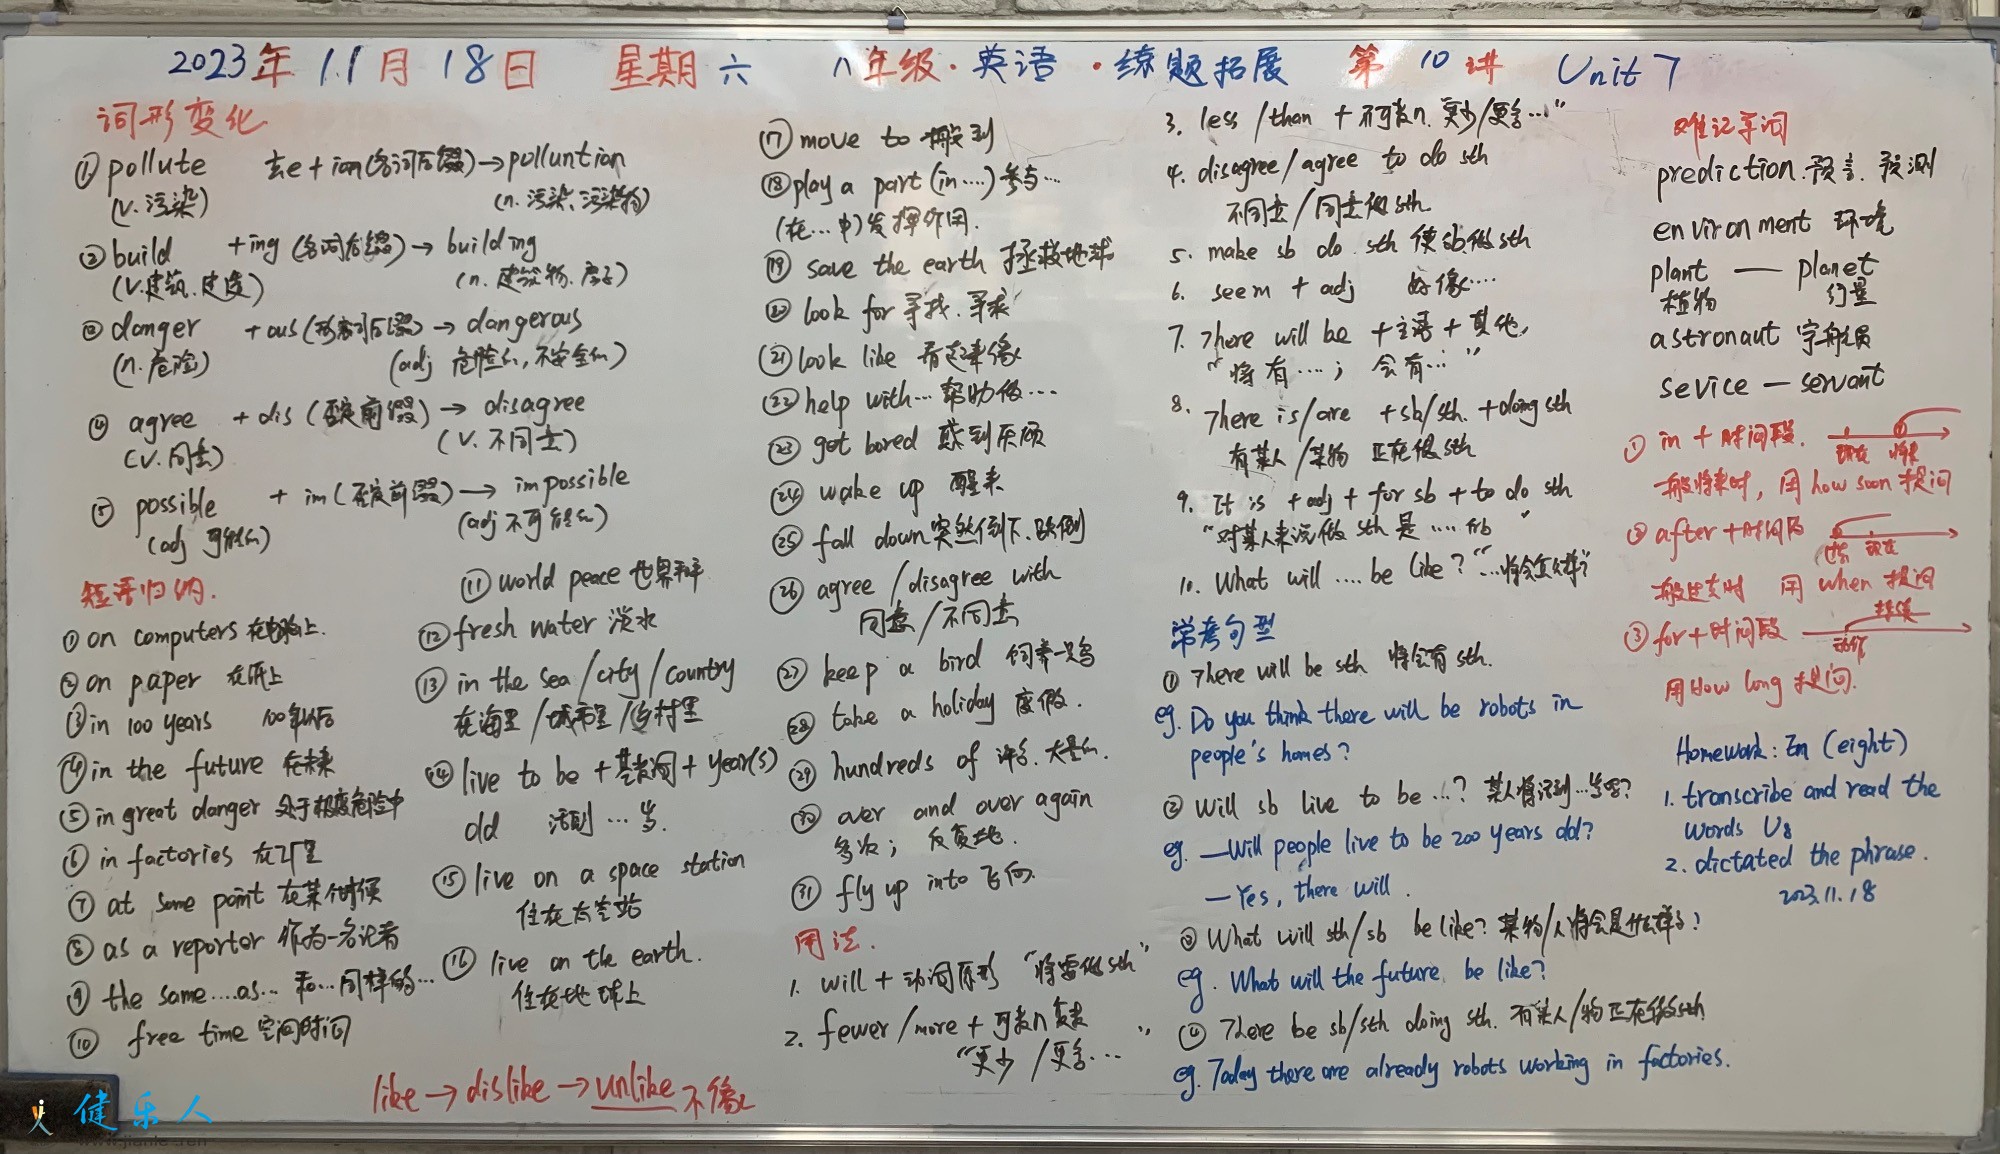 2023年 11月 18日 星期六 八年级·英语·练题拓展 第10讲 Unit 7
词形变化
① pollute 去e + ion(名词后缀) → polluntion
(v. 污染) (n. 污染、污染物)
② build +ing (名词后缀) → building
(v.建筑.建造) (n. 建筑物.房子)
③ danger + ous (形容词后缀) → dangerous
(n. 危险) (adj 危险的, 不安全的)
④ agree + dis (否定前缀) → disagree
(v. 同意) (v. 不同意)
⑤ possible + im (否定前缀) → impossible
(adj 可能的) (adj 不可能的)
短语归纳.
① on computers 在电脑上.
② on paper 在纸上
③ in 100 years 100年以后
④ in the future 在未来
⑤ in great danger 处于极度危险中
⑥ in factories 在工厂里
⑦ at some point 在某个时候
⑧ as a reporter 作为一名记者
⑨ the same....as... 和...同样的...
⑩ free time 空闲时间
⑪ world peace 世界和平
⑫ fresh water 淡水
⑬ in the sea / city / country
在海里 / 城市里 / 乡村里
⑭ live to be + 基数词 + year(s)
old 活到 ... 岁.
⑮ live on a space station
住在太空站
⑯ live on the earth.
住在地球上
like → dislike → unlike 不像
⑰ move to 搬到
⑱ play a part (in ....) 参与...
(在...中) 发挥作用.
⑲ save the earth 拯救地球
⑳ look for 寻找. 寻求
㉑ look like 看起来像
㉒ help with... 帮助做....
㉓ get bored 感到厌烦
㉔ wake up 醒来
㉕ fall down 突然倒下.跌倒
㉖ agree / disagree with
同意 / 不同意
㉗ keep a bird 饲养一只鸟
㉘ take a holiday 度假.
㉙ hundreds of 许多. 大量的.
㉚ over and over again
多次; 反复地.
㉛ fly up into 飞向.
用法.
1. will + 动词原形 "将要做sth"
2. fewer / more + 可数n复数
"更少 / 更多..."
3. less / than + 不可数n. 更少/更多..."
4. disagree / agree to do sth
不同意 / 同意做sth.
5. make sb do sth 使sb做sth
6. seem + adj 好像....
7. There will be + 主语 + 其他,
"将有....; 会有..."
8. There is/are + sb/sth. + doing sth
有某人 / 某物 正在做sth
9. It is + adj + for sb + to do sth
"对某人来说做 sth 是 .... 的"
10. What will .... be like? "...将会怎么样?
常考句型
① There will be sth 将会有 sth.
eg. Do you think there will be robots in
people's homes?
② Will sb live to be ...? 某人将活到...岁吗?
eg. — Will people live to be 200 years old?
— Yes, there will.
③ What will sth/sb be like? 某物/人将会是什么样子?
eg. What will the future be like?
④ There be sb/sth doing sth. 有某人/物正在做sth
eg. Today there are already robots working in factories.
难记单词
prediction. 预言. 预测
environment 环境
plant — planet
植物 行星
astronaut 宇航员
sevice — servant
① in + 时间段. 现在 将来
一般将来时, 用 how soon 提问
② after + 时间段 过去 现在
一般过去时 用 when 提问
③ for + 时间段 持续
用How long 提问.
Homework: En (eight)
1. transcribe and read the
words U8
2. dictated the phrase.
2023.11.18
健乐人
www.jianle.ren